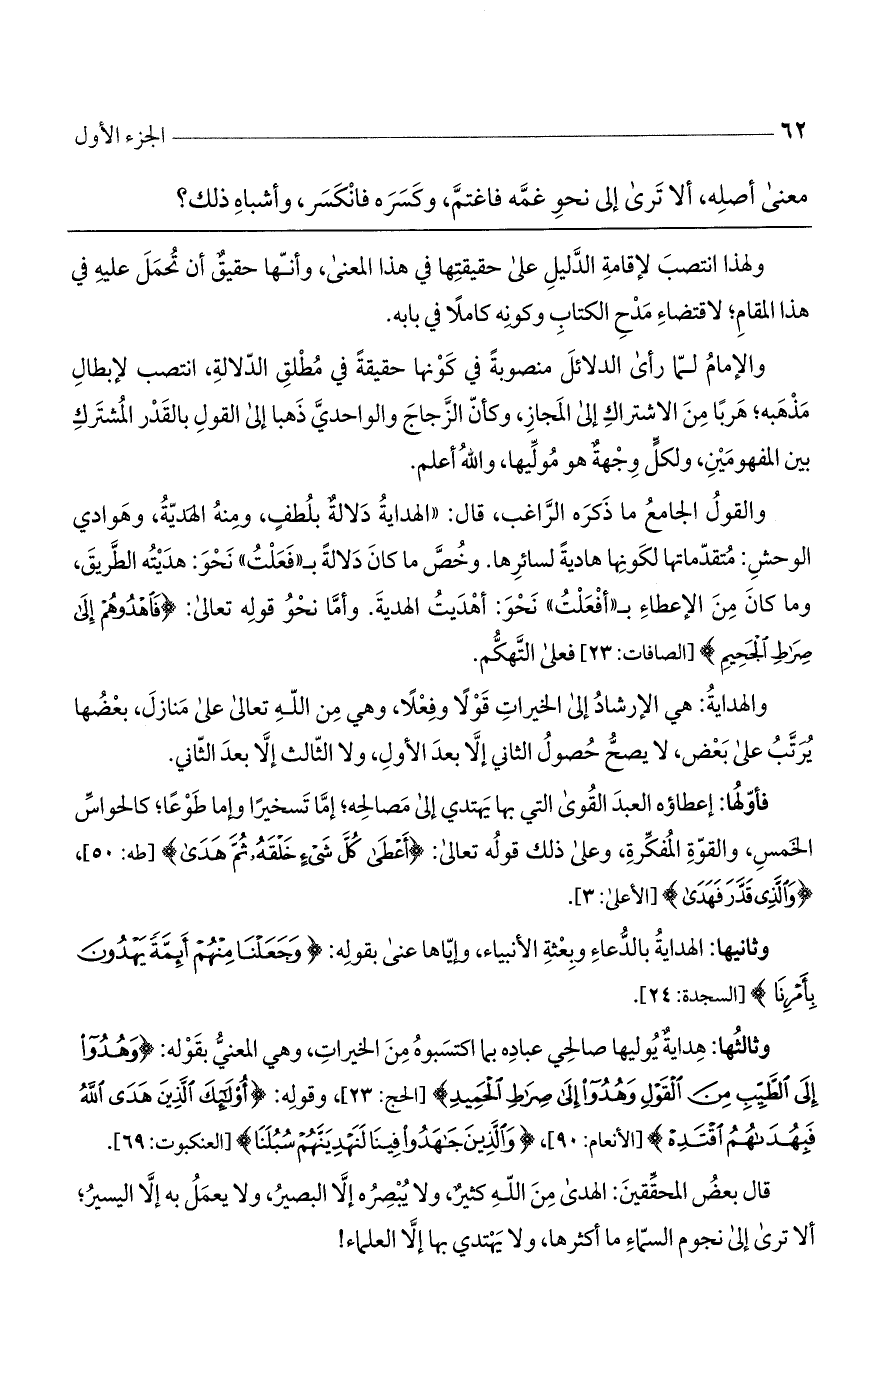 ٦٢ الجزء الأول
معنىٰ أصلِه، ألا تَرىٰ إلى نحوِ غمَّه فاغتمَّ، وكَسَرَه فانْكَسَر، وأشباهِ ذلك؟
ولهذا انتصبَ لإقامةِ الدَّليلِ علىٰ حقيقتِها في هذا المعنىٰ، وأنّـها حقيقٌ أن تُحمَلَ عليهِ في
هذا المقامِ؛ لاقتضاءِ مَدْحِ الكتابِ وكونِه كاملًا في بابه.
والإمامُ لـمّا رأىٰ الدلائلَ منصوبةً في كَوْنها حقيقةً في مُطْلقِ الدّلالةِ، انتصب لإبطالِ
مَذْهَبه؛ هَربًا مِنَ الاشتراكِ إلىٰ المَجازِ، وكأنّ الزَّجاجَ والواحديَّ ذَهبا إلىٰ القولِ بالقَدْر المُشتَركِ
بين المفهومَيْنِ، ولكلٍّ وِجْهةٌ هو مُولِّيها، واللهُ أعلم.
والقولُ الجامعُ ما ذَكرَه الرَّاغب، قال: «الهدايةُ دَلالةٌ بلُطفٍ، ومِنهُ الهَديّةُ، وهَوادي
الوحشِ: مُتقدّماتها لكَونِها هاديةً لسائرِها. وخُصَّ ما كانَ دَلالةً بـ«فَعَلْتُ» نَحْوَ: هدَيْتُه الطَّريقَ،
وما كانَ مِنَ الإعطاءِ بـ«أفْعَلْتُ» نَحْوَ: أهْدَيتُ الهديةَ. وأمَّا نحْوُ قولِه تعالىٰ: ﴿فَٱهْدُوهُمْ إِلَىٰ
صِرَٰطِ ٱلْجَحِيمِ﴾ [الصافات: ٢٣] فعلىٰ التَّهكُّم.
والهدايةُ: هي الإرشادُ إلىٰ الخيراتِ قَوْلًا وفِعْلًا، وهي مِن اللـهِ تعالىٰ علىٰ مَنازلَ، بعْضُها
يُرَتَّبُ علىٰ بَعْض، لا يصحُّ حُصولُ الثاني إلَّا بعدَ الأولِ، ولا الثّالث إلَّا بعدَ الثّاني.
فأوّلهُا: إعطاؤه العبدَ القُوىٰ التي بها يَهتدي إلىٰ مَصالحِه؛ إمَّا تَسخيرًا وإما طَوْعًا؛ كالحواسِّ
الخمسِ، والقوّةِ المُفكِّرةِ، وعلىٰ ذلك قولُه تعالىٰ: ﴿أَعْطَىٰ كُلَّ شَىْءٍ خَلْقَهُۥ ثُمَّ هَدَىٰ﴾ [طه: ٥٠]،
﴿وَٱلَّذِى قَدَّرَ فَهَدَىٰ﴾ [الأعلىٰ: ٣].
وثانيها: الهدايةُ بالدُّعاءِ وبِعْثةِ الأنبياء، وإيّاها عنىٰ بقولِه: ﴿وَجَعَلْنَا مِنْهُمْ أَئِمَّةً يَهْدُونَ
بِأَمْرِنَا﴾ [السجدة: ٢٤].
وثالثُها: هِدايةٌ يُوليها صالحِي عبادِه بما اكتسَبوهُ مِنَ الخيراتِ، وهي المعنيُّ بقَوْله: ﴿وَهُدُوٓا۟
إِلَى ٱلطَّيِّبِ مِنَ ٱلْقَوْلِ وَهُدُوٓا۟ إِلَىٰ صِرَٰطِ ٱلْحَمِيدِ﴾ [الحج: ٢٣]، وقولِه: ﴿أُو۟لَٰٓئِكَ ٱلَّذِينَ هَدَى ٱللَّهُ
فَبِهُدَىٰهُمُ ٱقْتَدِهْ﴾ [الأنعام: ٩٠]، ﴿وَٱلَّذِينَ جَٰهَدُوا۟ فِينَا لَنَهْدِيَنَّهُمْ سُبُلَنَا﴾ [العنكبوت: ٦٩].
قال بعضُ المحقِّقينَ: الهدىٰ مِنَ اللـهِ كثيرٌ، ولا يُبْصِرُه إلَّا البصيرُ، ولا يعملُ به إلَّا اليسيرُ؛
ألا ترىٰ إلىٰ نجوم السمّاءِ ما أكثرها، ولا يَهْتدي بها إلَّا العلماء!